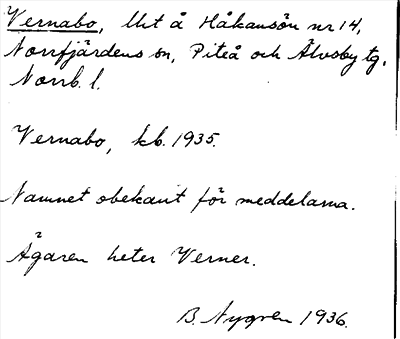 Vernabo, lht å Håkansön nr 14,
Norrfjärdens sn, Piteå och Älvsby tg,
Norrb. l.
Vernabo, kb. 1935.
Namnet obekant för meddelarna.
Ägaren heter Verner.
B. Nygren 1936.